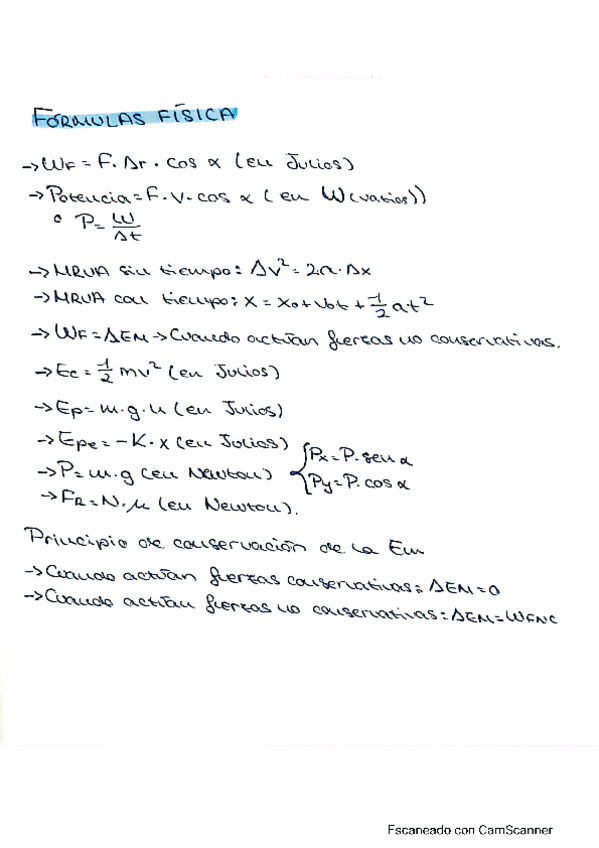 FÓRMULAS FÍSICA
→ WF = F · Δr · cos α (en Julios)
→ Potencia = F · V · cos α (en W (vatios))
° P = W/Δt
→ MRUA sin tiempo: Δv² = 2·a · Δx
→ MRUA con tiempo: x = x₀ + v₀t + 1/2 a·t²
→ WF = ΔEM → Cuando actúan fuerzas no conservativas.
→ Ec = 1/2 mv² (en Julios)
→ Ep = m·g·h (en Julios)
→ Epe = -K · x (en Julios)
→ P = m·g (en Newton) { Px = P · sen α
Py = P · cos α
→ FR = N · μ (en Newton).
Principio de conservación de la Em
→ Cuando actúan fuerzas conservativas: ΔEM = 0
→ Cuando actúan fuerzas no conservativas: ΔEM = WFNC
Escaneado con CamScanner